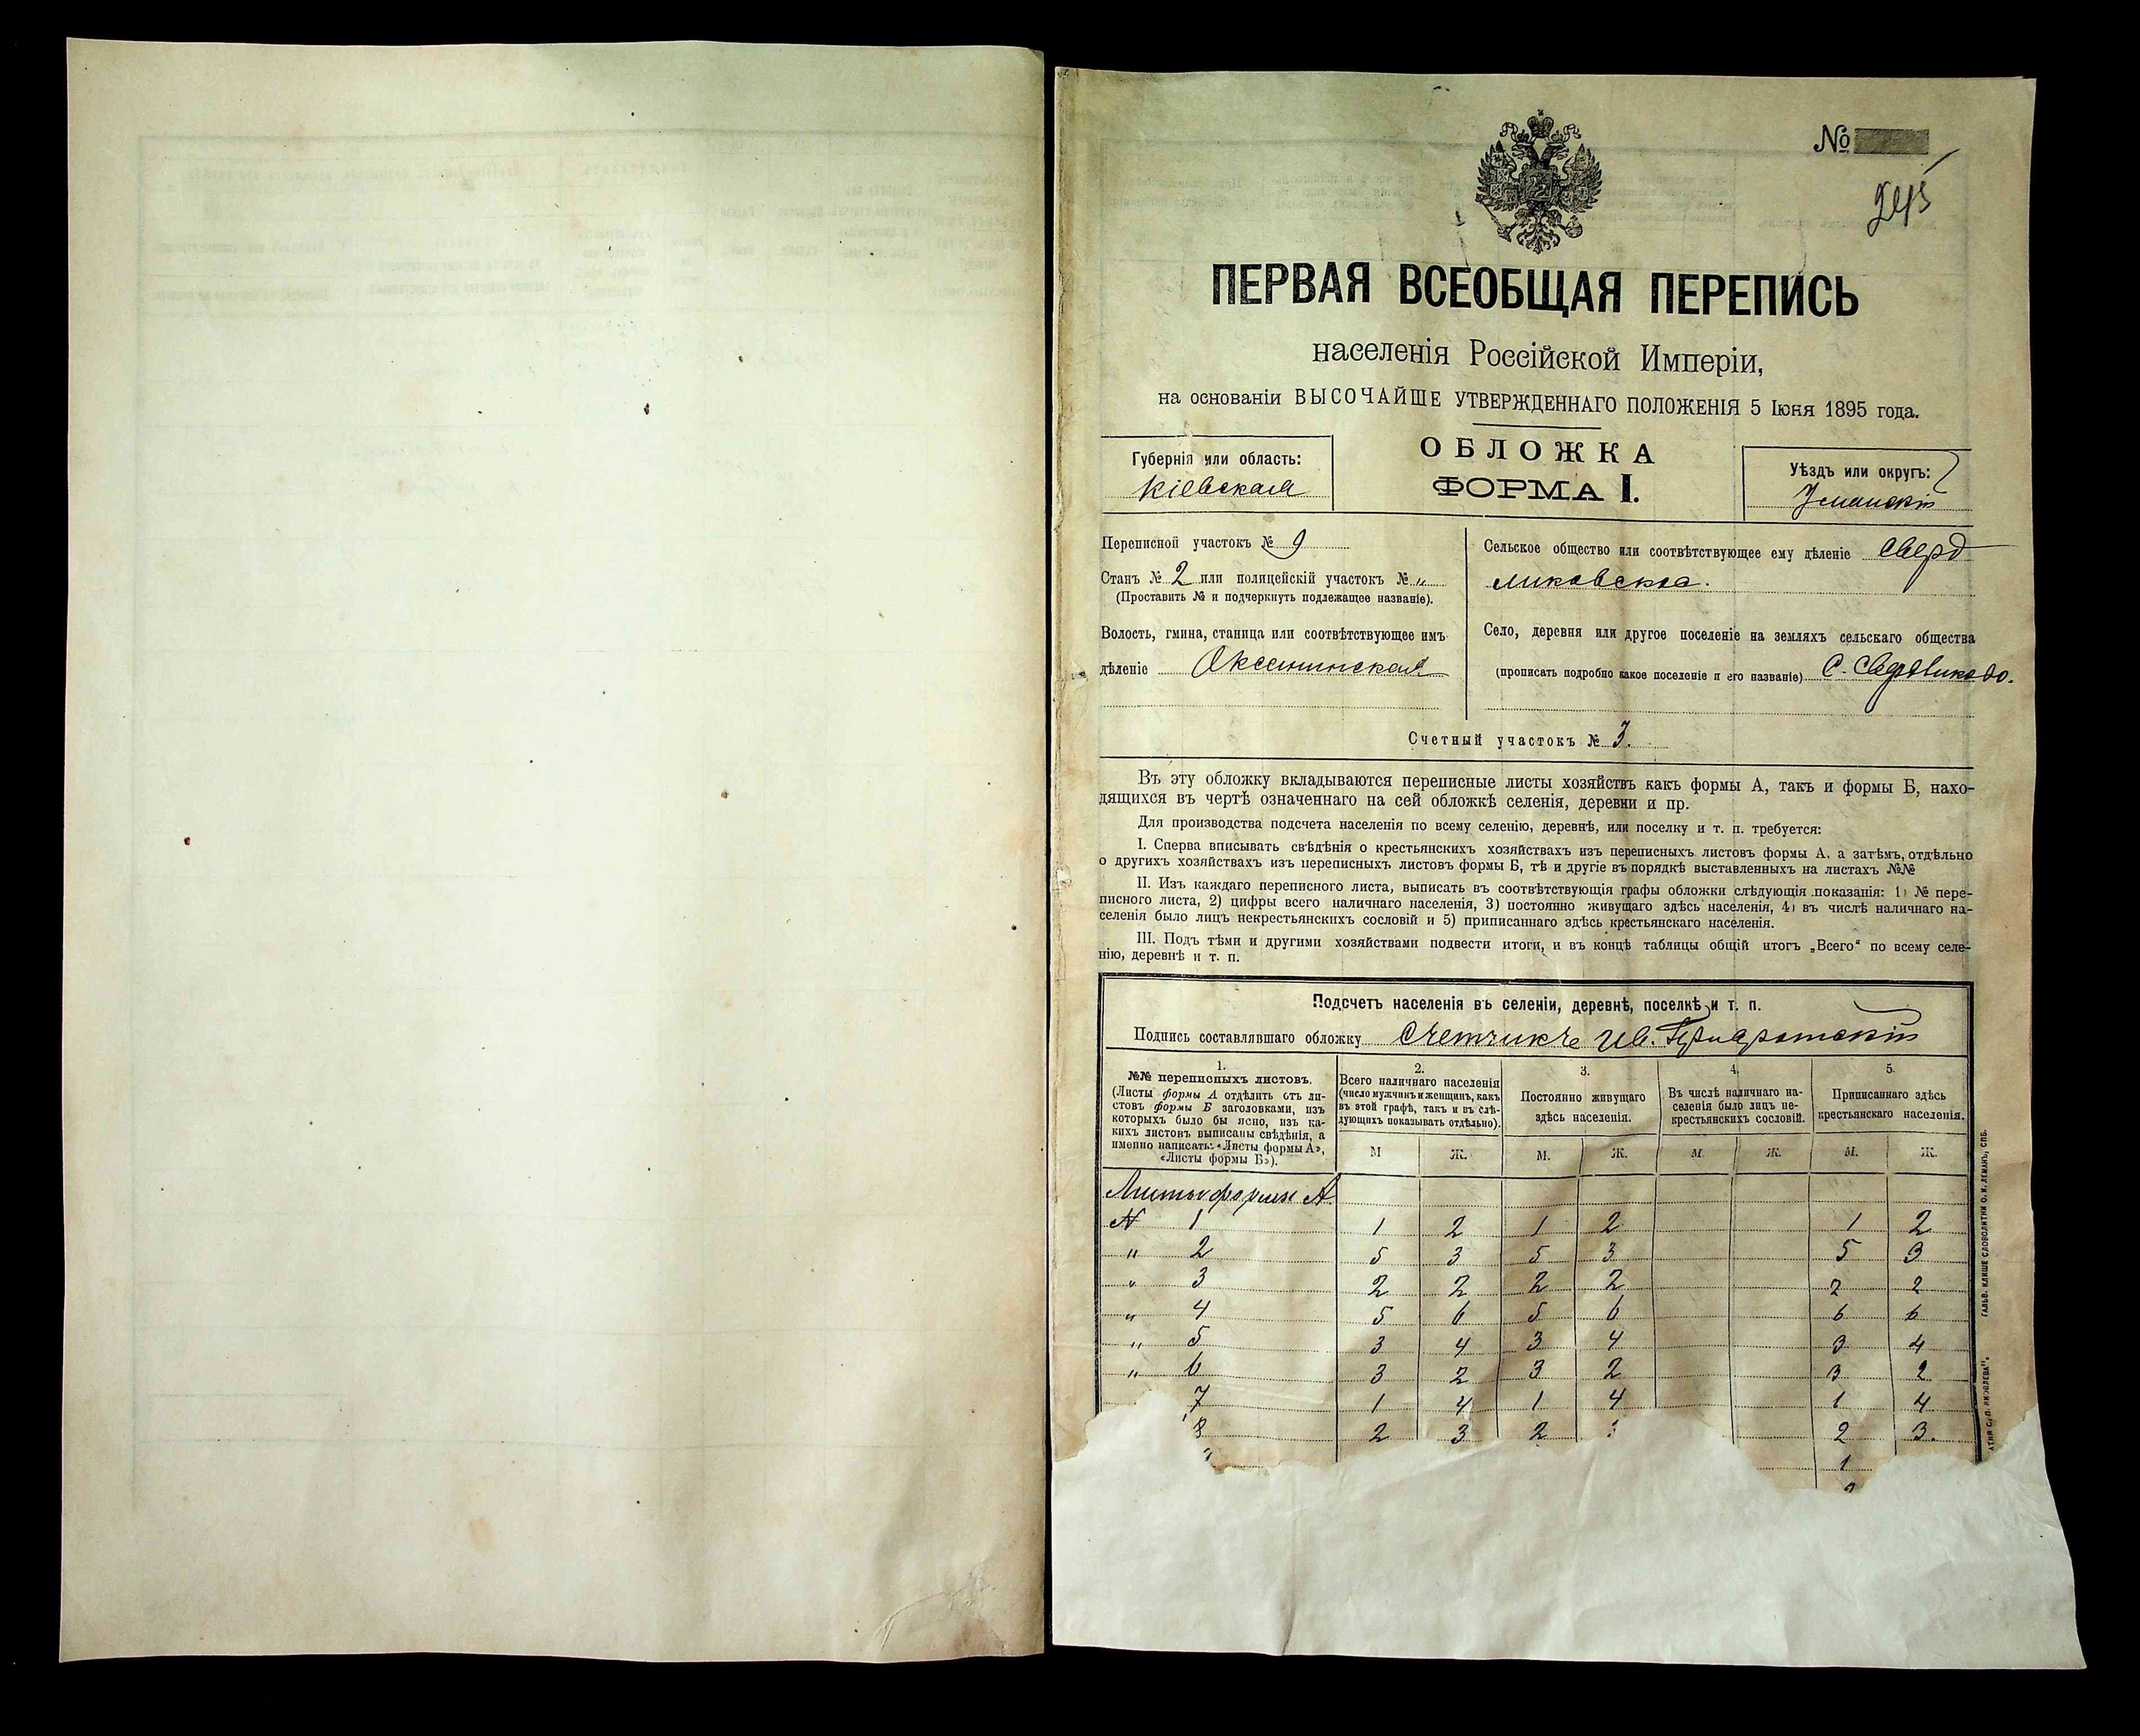 №
245
ПЕРВАЯ ВСЕОБЩАЯ ПЕРЕПИСЬ
населенія Россійской Имперіи,
на основаніи ВЫСОЧАЙШЕ УТВЕРЖДЕННАГО ПОЛОЖЕНІЯ 5 Іюня 1895 года.
Губернія или область:
Кіевская
ОБЛОЖКА
ФОРМА I.
Уѣздъ или округъ:
Уманскій
Переписной участокъ № 9
Станъ № 2 или полицейскій участокъ № „
(Проставить № и подчеркнуть подлежащее названіе).
Волость, гмина, станица или соотвѣтствующее имъ
дѣленіе Оксанинская
Сельское общество или соотвѣтствующее ему дѣленіе Сверд
ликовское.
Село, деревня или другое поселеніе на земляхъ сельскаго общества
(прописать подробно какое поселеніе и его названіе) С. Свердликово.
Счетный участокъ № 3.
Въ эту обложку вкладываются переписные листы хозяйствъ какъ формы А, такъ и формы Б, нахо-
дящихся въ чертѣ означеннаго на сей обложкѣ селенія, деревни и пр.
Для производства подсчета населенія по всему селенію, деревнѣ, или поселку и т. п. требуется:
I. Сперва вписывать свѣдѣнія о крестьянскихъ хозяйствахъ изъ переписныхъ листовъ формы А, а затѣмъ, отдѣльно
о другихъ хозяйствахъ изъ переписныхъ листовъ формы Б, тѣ и другіе въ порядкѣ выставленныхъ на листахъ №№
II. Изъ каждаго переписного листа, выписать въ соотвѣтствующія графы обложки слѣдующія показанія: 1) № пере-
писного листа, 2) цифры всего наличнаго населенія, 3) постоянно живущаго здѣсь населенія, 4) въ числѣ наличнаго на-
селенія было лицъ некрестьянскихъ сословій и 5) приписаннаго здѣсь крестьянскаго населенія.
III. Подъ тѣми и другими хозяйствами подвести итоги, и въ концѣ таблицы общій итогъ „Всего“ по всему селе-
нію, деревнѣ и т. п.
Подсчетъ населенія въ селеніи, деревнѣ, поселкѣ и т. п.
Подпись составлявшаго обложку Счетчикъ Ив.
1.
№№ переписныхъ листовъ.
(Листы формы А отдѣлить отъ ли-
стовъ формы Б заголовками, изъ
которыхъ было бы ясно, изъ ка-
кихъ листовъ выписаны свѣдѣнія, а
именно написать: «Листы формы А»,
«Листы формы Б»).
2.
Всего наличнаго населенія
(число мужчинъ и женщинъ, какъ
въ этой графѣ, такъ и въ слѣ-
дующихъ показывать отдѣльно).
3.
Постоянно живущаго
здѣсь населенія.
4.
Въ числѣ наличнаго на-
селенія было лицъ не-
крестьянскихъ сословій.
5.
Приписаннаго здѣсь
крестьянскаго населенія.
М Ж. М. Ж. М. Ж. М. Ж.
Листы формы А
№ 1 1 2 1 2 1 2
„ 2 5 3 5 3 5 3
„ 3 2 2 2 2 2 2
„ 4 5 6 5 6 6 6
„ 5 3 4 3 4 3 4
„ 6 3 2 3 2 3 2
7 1 4 1 4 1 4
8 2 3 2 2 3.
1
ГАЛЬВ. КЛИШЕ СЛОВОЛИТНИ О. И. ЛЕМАНЪ, СПБ.